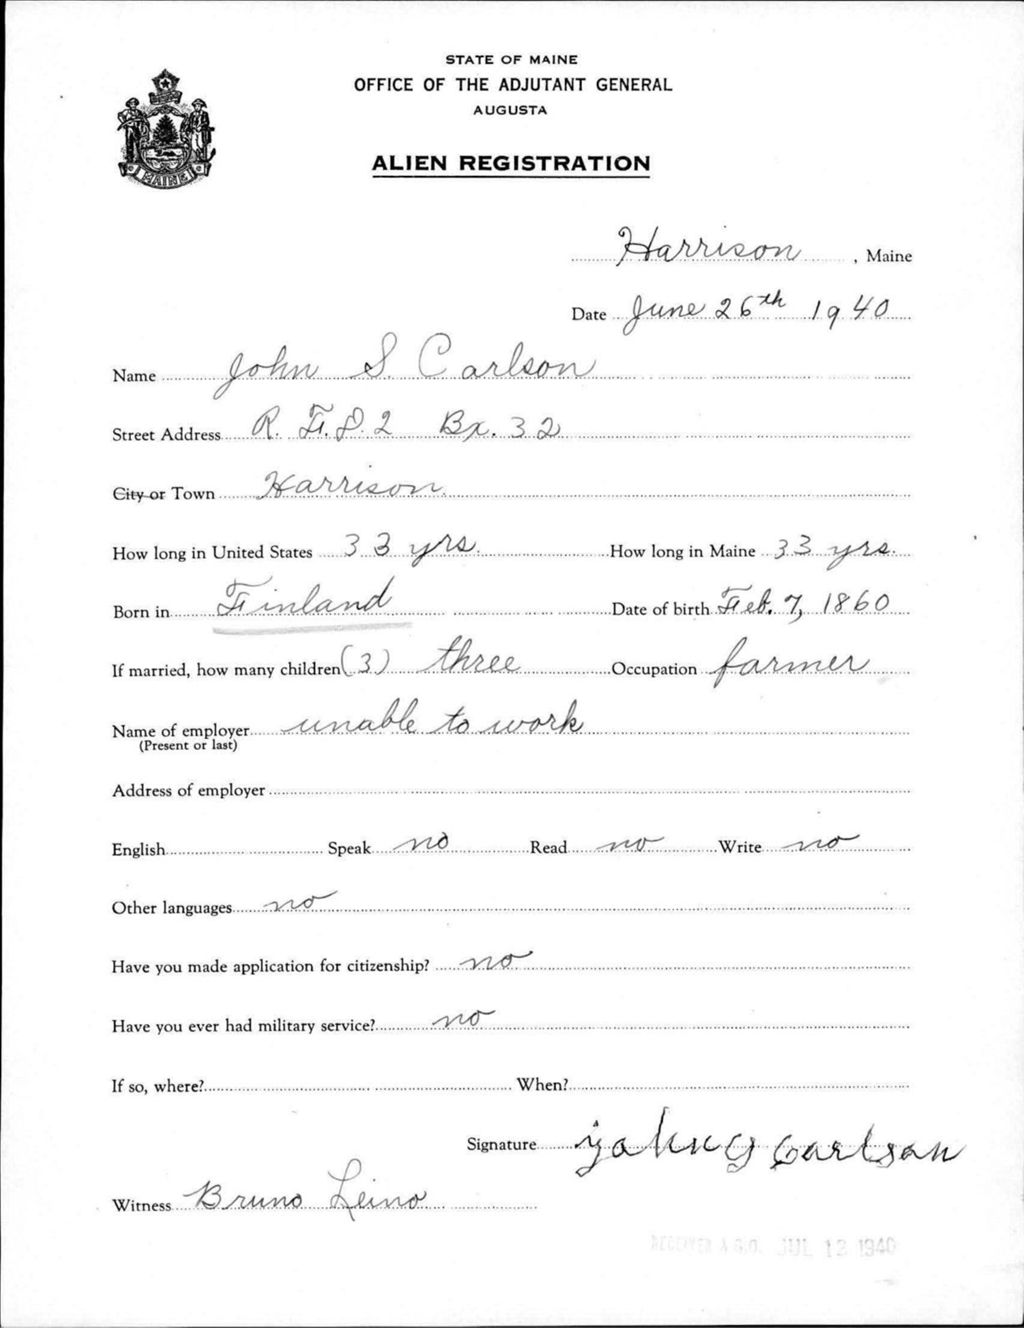 STATE OF MAINE
OFFICE OF THE ADJUTANT GENERAL
AUGUSTA
ALIEN REGISTRATION
MAINE
Harrison, Maine
Date June 26th 1940
Name John S. Carlson
Street Address R. F. D. 2 Bx. 32
City or Town Harrison
How long in United States 33 yrs. How long in Maine 33 yrs.
Born in Finland Date of birth Feb. 7, 1860
If married, how many children (3) three Occupation farmer
Name of employer unable to work
(Present or last)
Address of employer
English Speak no Read no Write no
Other languages no
Have you made application for citizenship? no
Have you ever had military service? no
If so, where? When?
Signature John Carlson
Witness Bruno Leino
RECEIVED A.G.O. JUL 12 1940